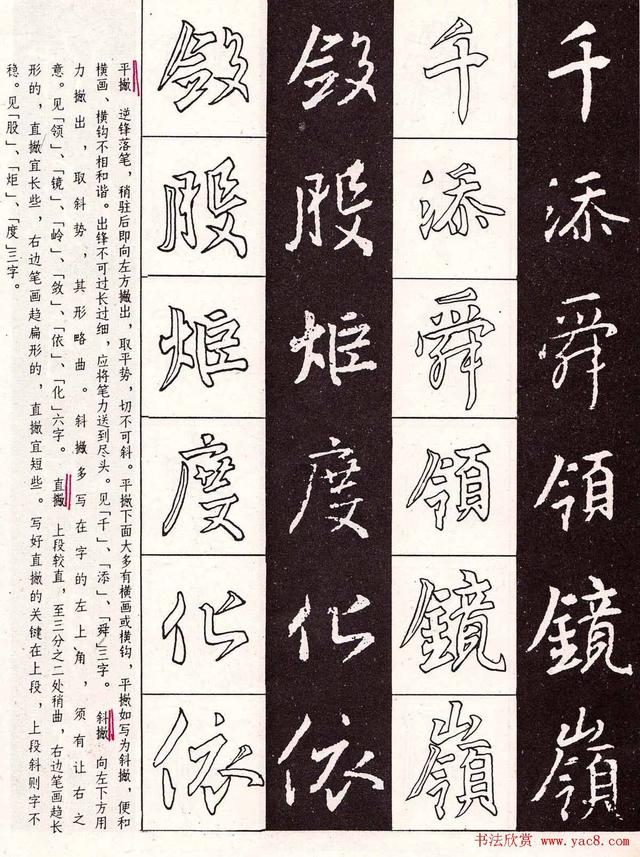 千
添
舜
領
鏡
嶺
千
添
舜
領
鏡
嶺
敘
股
炬
度
化
依
敘
股
炬
度
化
依
平撇 逆锋落笔，稍驻后即向左方撇出，取平势，切不可斜。平撇下面大多有横画或横钩，平撇如写为斜撇，便和
横画、横钩不相和谐。出锋不可过长过细，应将笔力送到尽头。见「千」、「添」、「舜」三字。 斜撇 向左下方用
力撇出，取斜势，其形略曲。斜撇多写在字的左上角，须有让右之
意。见「领」、「镜」、「岭」、「敘」、「依」、「化」六字。 直撇 上段较直，至三分之二处稍曲，右边笔画趋长
形的，直撇宜长些，右边笔画趋扁形的，直撇宜短些。写好直撇的关键在上段，上段斜则字不
稳。见「股」、「炬」、「度」三字。
书法欣赏 www.yac8.com